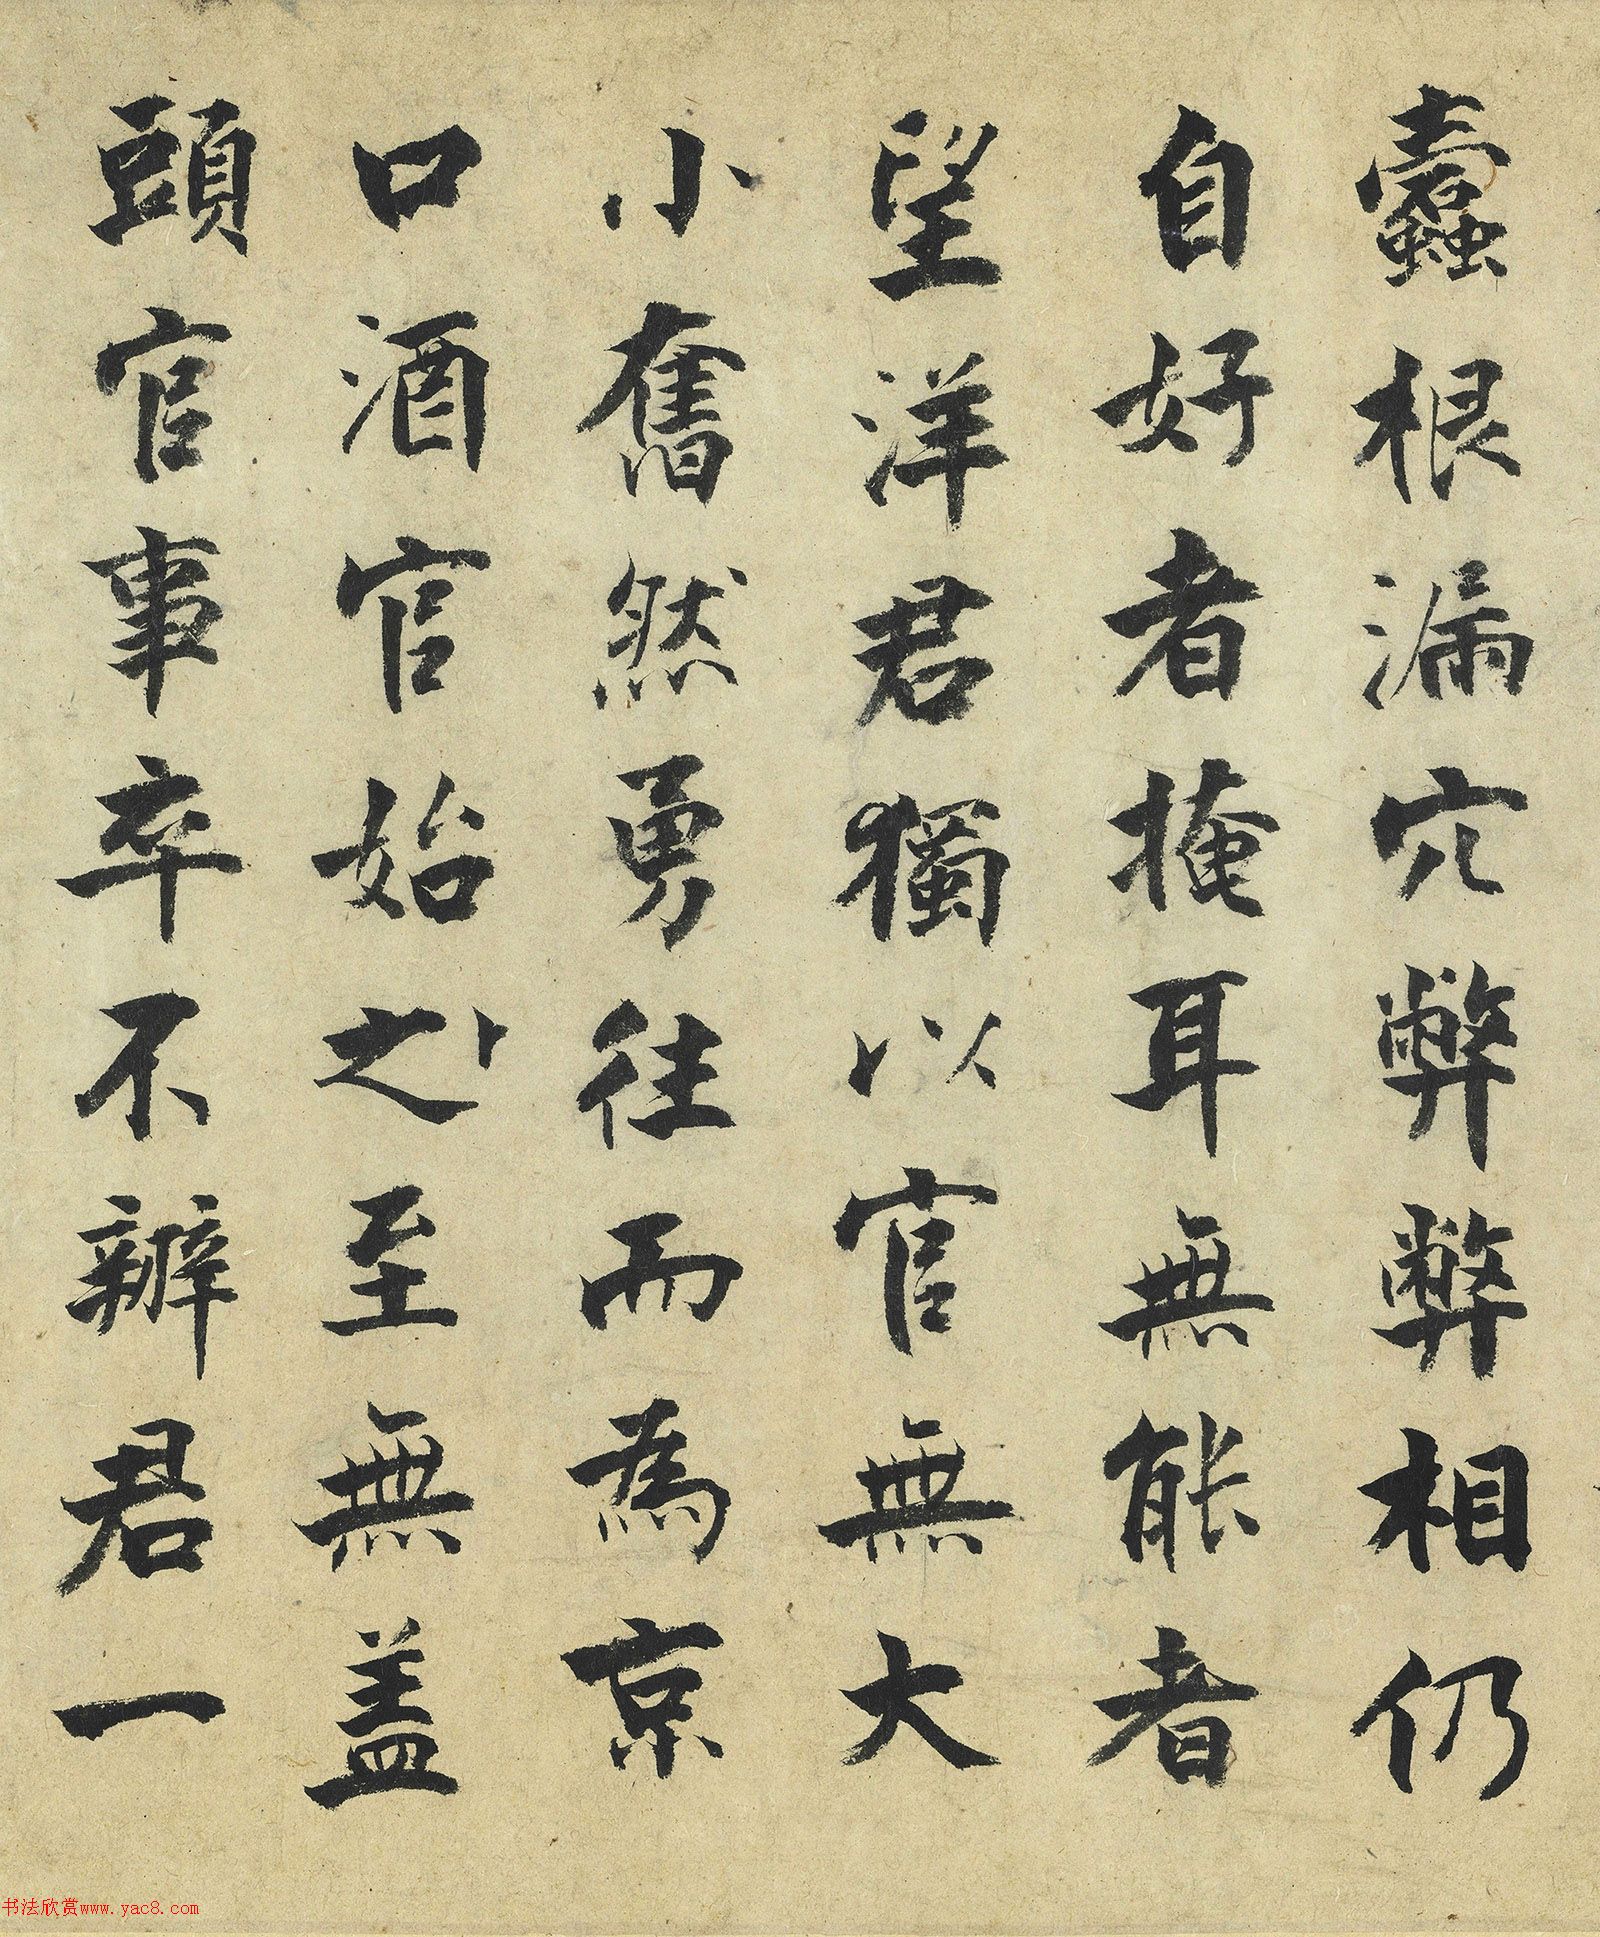 蠹根漏穴弊弊相仍
自好者掩耳無能者
望洋君獨以官無大
小奮然勇往而為京
口酒官始之卜至無蓋
頭官事卒不辦君一
书法欣赏www.yac8.com